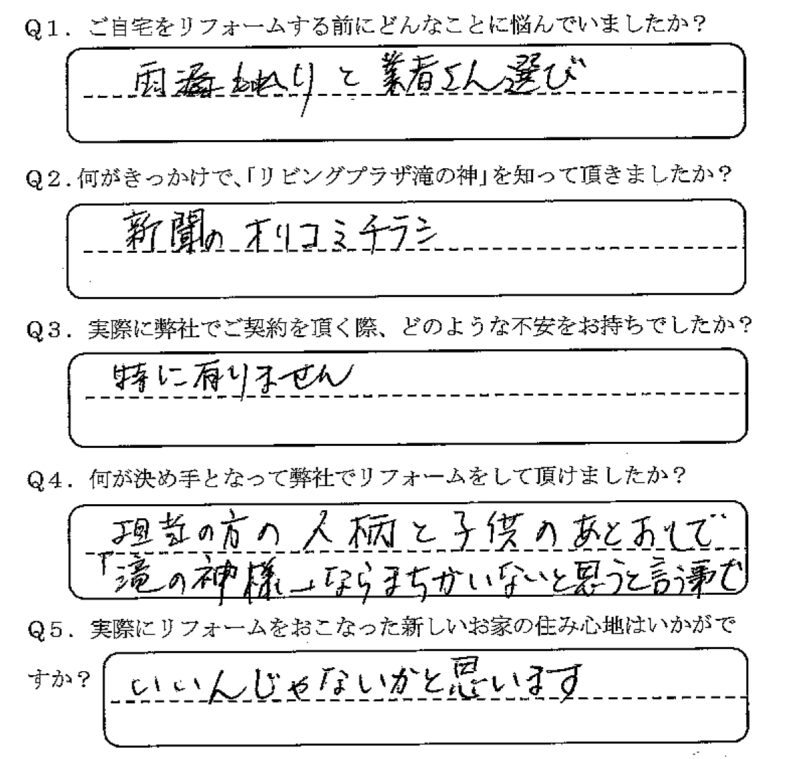 Q1. ご自宅をリフォームする前にどんなことに悩んでいましたか?
雨漏もれりと業者さん選び
Q2.何がきっかけで、「リビングプラザ滝の神」を知って頂きましたか?
新聞のオリコミチラシ
Q3. 実際に弊社でご契約を頂く際、どのような不安をお持ちでしたか?
特に有りません
Q4. 何が決め手となって弊社でリフォームをして頂けましたか?
担当の方の人柄と子供のあとおしで
「滝の神様」ならまちがいないと思うと言う事で
Q5. 実際にリフォームをおこなった新しいお家の住み心地はいかがで
すか?
いいんじゃないかと思います